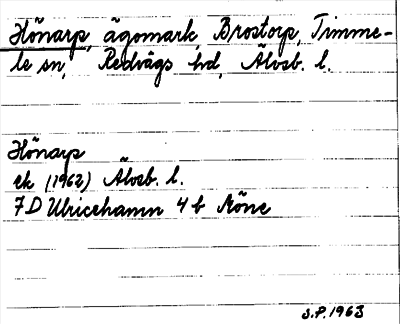 Hönarp, ägomark, Brostorp, Timme-
le sn, Redvägs hd, Älvsb. l.
Hönarp
ek (1962) Älvsb. l.
7D Ulricehamn 4 b Röne
S.P. 1963